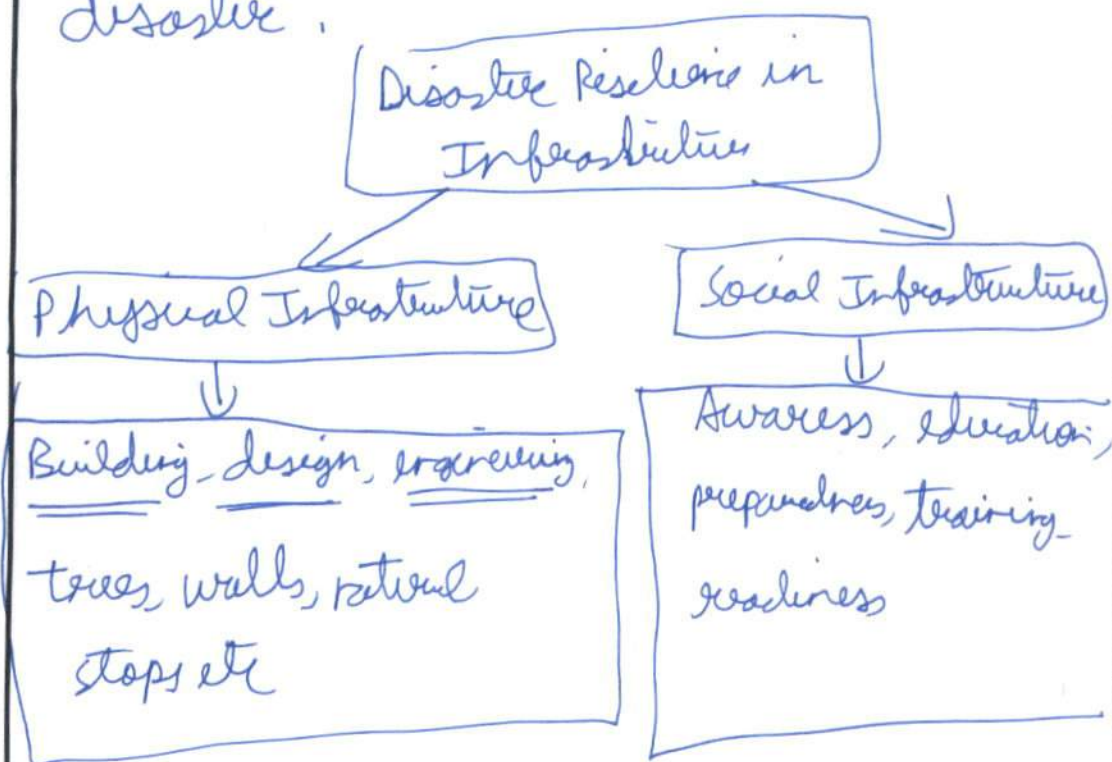 disaster.
Disaster Resilience in
Infrastructure
Physical Infrastructure
Social Infrastructure
Building, design, engineering,
trees, walls, natural
stops etc
Awaress, education,
preparedness, training
readiness